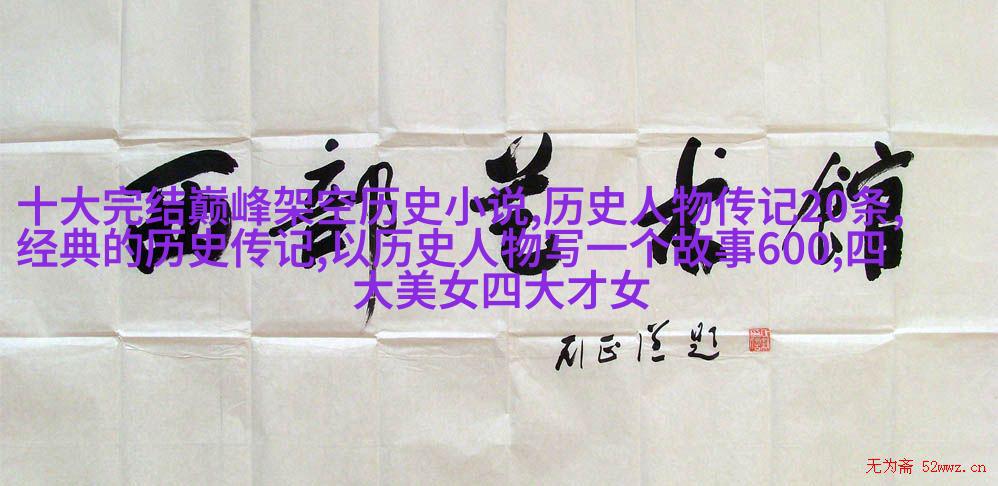 西部艺术馆
十大完结巅峰架空历史小说,历史人物传记20条,
经典的历史传记,以历史人物写一个故事600,四
大美女四大才女
题
无为斋 52wwz.cn